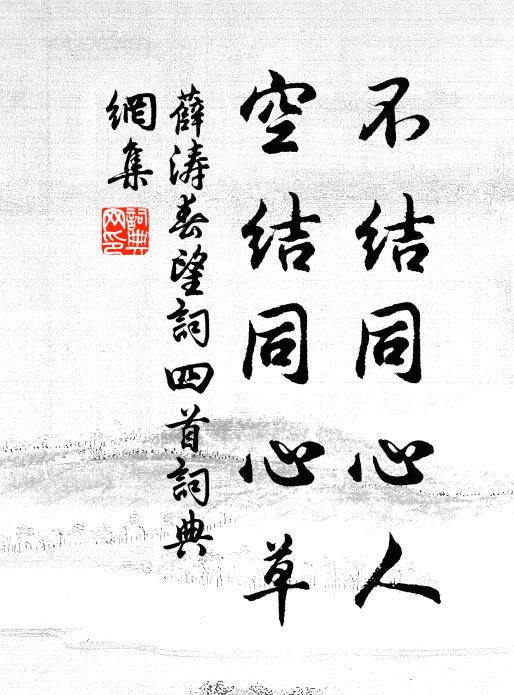 不结同心人
空结同心草
薛涛春望詞四首詞典
網集
詞典
网印